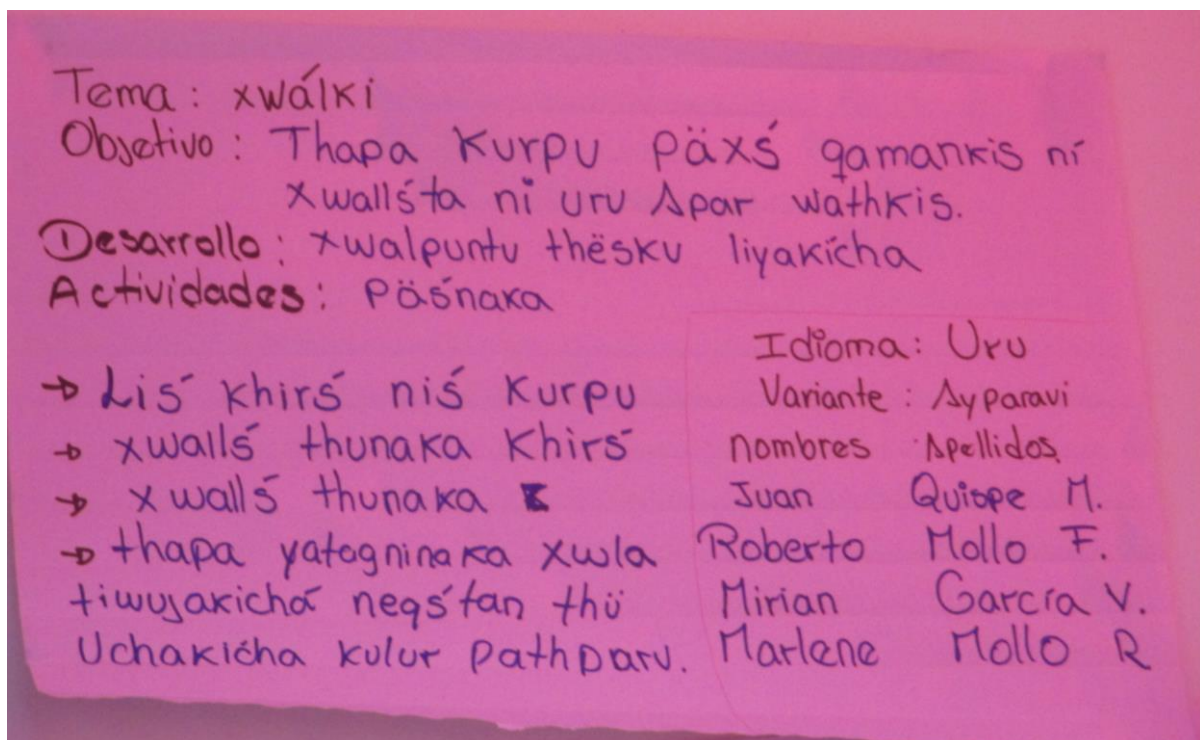 Tema: xwálki
Objetivo: Thapa Kurpu päxś qamankis ní
xwallśta ni uru Apar wathkis.
Desarrollo: xwalpuntu thësku liyakícha
Actividades: Päśnaka
→ Liś khirś niś kurpu
→ xwallś thunaka khirś
→ xwallś thunaka
→ thapa yatagninaka xwla
tiwuyakichá neqśtan thü
Uchakicha kulur pathparu.
Idioma: Uru
Variante: Ayparavi
nombres Apellidos
Juan Quispe M.
Roberto Mollo F.
Mirian García V.
Marlene Mollo R